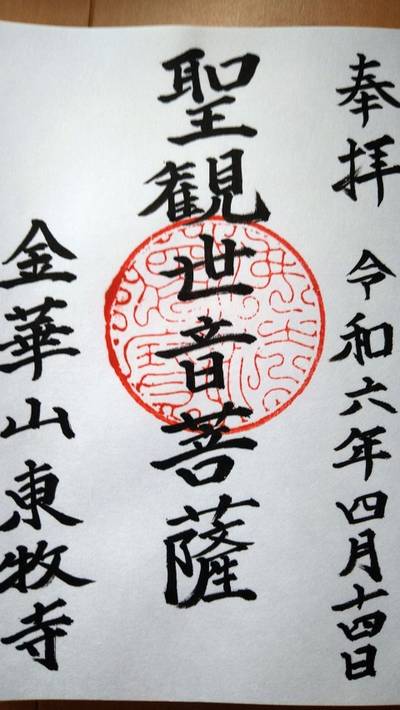 奉拝 令和六年四月十四日
聖観世音菩薩
金華山東牧寺